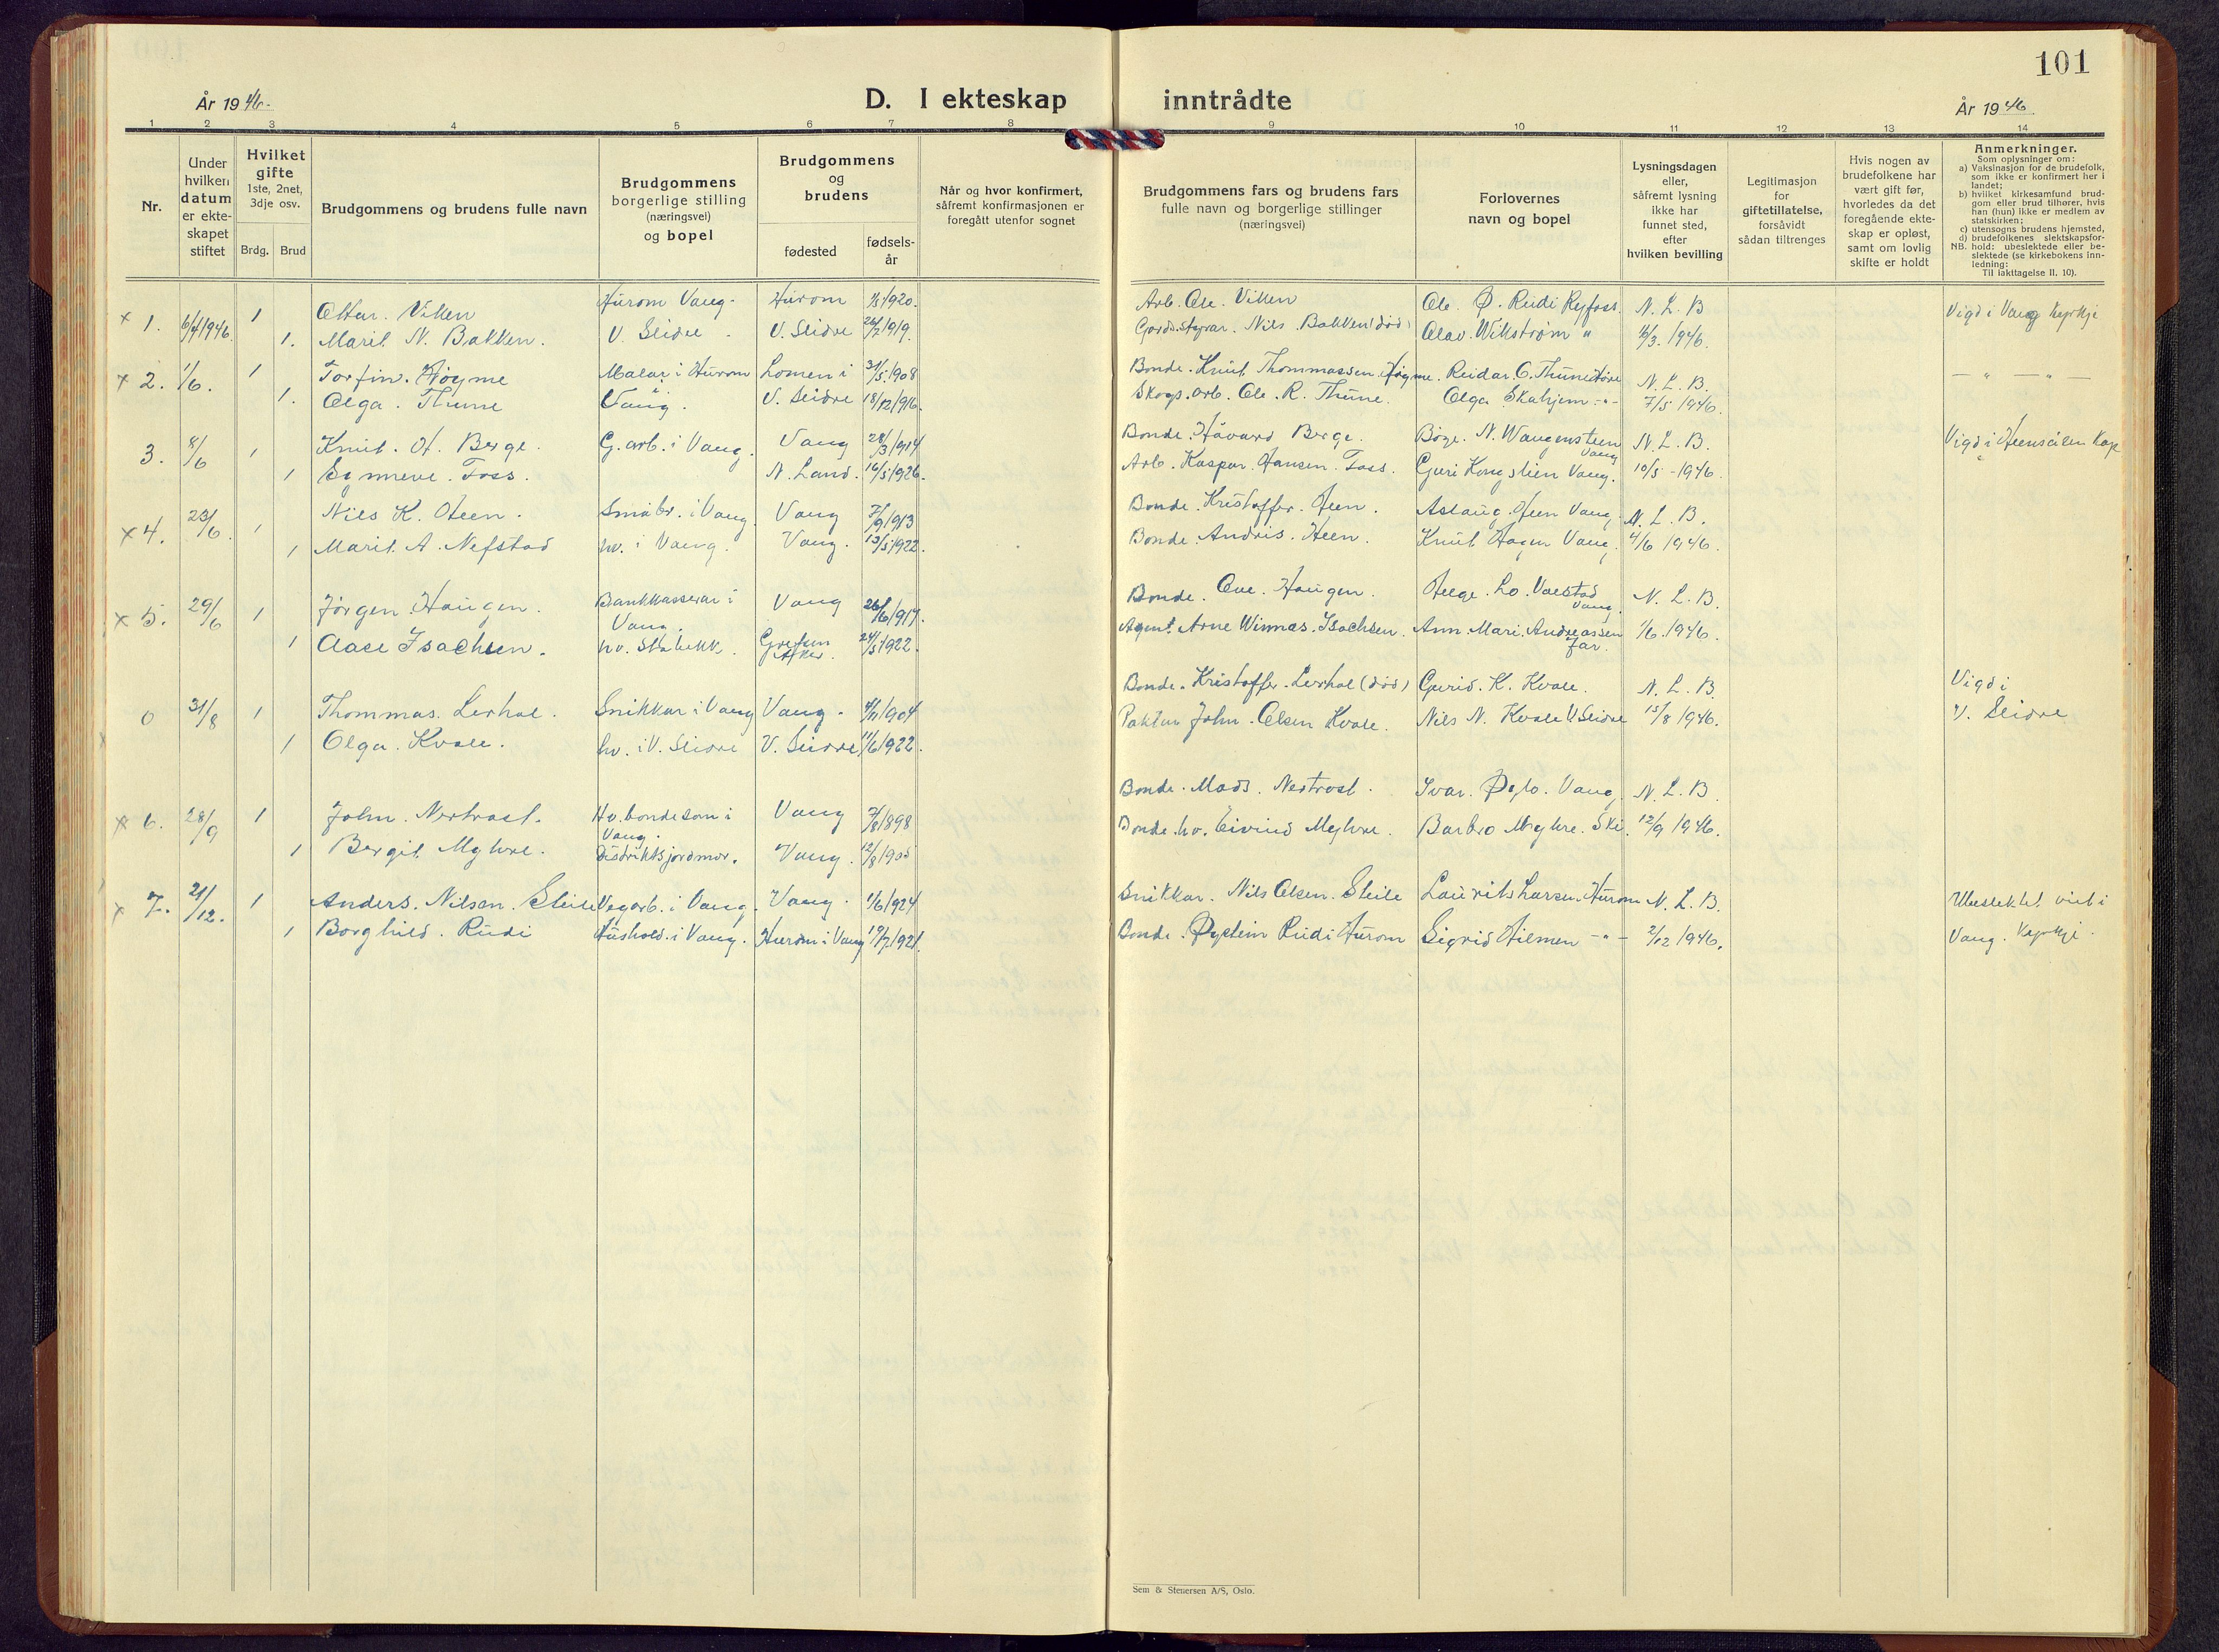 101
År 1946.
D. I ekteskap inntrådte
År 1946
1 2 3 4 5 6 7 8 9 10 11 12 13 14
Nr.
Under hvilken datum er ekteskapet stiftet
Hvilket gifte 1ste, 2net, 3dje osv.
Brdg. Brud
Brudgommens og brudens fulle navn
Brudgommens borgerlige stilling (næringsvei) og bopel
Brudgommens og brudens
fødested
fødselsår
Når og hvor konfirmert, såfremt konfirmasjonen er foregått utenfor sognet
Brudgommens fars og brudens fars fulle navn og borgerlige stillinger (næringsvei)
Forlovernes navn og bopel
Lysningsdagen eller, såfremt lysning ikke har funnet sted, efter hvilken bevilling
Legitimasjon for giftetillatelse, forsåvidt sådan tiltrenges
Hvis nogen av brudefolkene har vært gift før, hvorledes da det foregående ekteskap er opløst, samt om lovlig skifte er holdt
Anmerkninger.
Som oplysninger om:
a) Vaksinasjon for de brudefolk, som ikke er konfirmert her i landet;
b) hvilket kirkesamfund brudgom eller brud tilhører, hvis han (hun) ikke er medlem av statskirken;
c) utensogns brudens hjemsted,
d) brudefolkenes slektskapsforhold: ubeslektede eller beslektede (se kirkebokens innledning:
NB.
Til iakttagelse II. 10).
x 1. 6/4 1946. 1 Ottar. Viken Hurom Vang. Hurom 1/3 1920. Arb. Ole. Viken Ole. Ø. Rudi Ryfoss. N. L. B Vigd i Vang Kyrkje
1. Marit N. Bakken. V. Slidre. V. Slidre 26/2 1919. Gards.styrar. Nils Bakken (død) Olav. Wikstrøm " 16/3. 1946.
x 2. 1/6. 1 Torfin. Høyme Malar i Hurom Lomen i 31/5 1908 Bonde. Knut Thommassen. Høyme. Reidar O. Thune Høre N. L. B. — " — " —
1. Olga. Thune Vang. V. Slidre 18/12 1916. Skogs.arb. Ole. R. Thune. Olga Skahjem - " - 7/5 1946.
3. 8/6 1 Knut. H. Berge. G. arb. i Vang. Vang 28/3 1914 Bonde. Håvard Berge. Børge. N. Wangensteen Vang N. L. B. Vigd i Heensåsen Kape
1 Synneve. Foss. N. Land. 16/5 1926. Arb. Kaspar. Hansen. Foss. Guri Kongslien Vang. 10/5 - 1946.
x 4. 23/6. 1 Nils K. Heen. Småbr. i Vang. Vang 7/9 1913 Bonde. Kristoffer. Heen. Aslaug. Heen Vang. N. L. B.
1 Marit. A. Nefstad hv. i Vang. Vang. 13/5 1922. Bonde. Andris. Heen. Knut Hagen Vang. 4/6 1946.
x 5. 29/6 1 Jørgen. Haugen. Bankkasserar i Vang. Vang 26/6 1917. Bonde. Ove. Haugen. Helge. Lo. Valstad Vang. N. L. B.
1 Aase Isachsen. hv. Stabekk. Grefsen Aker. 24/5 1922. Agent. Arne Winnæs. Isachsen. Ann. Mari. Andreassen Jar. 1/6. 1946.
0 31/8 1 Thommas. Lerhol. Snikkar i Vang Vang. 4/11 1904 Bonde. Kristoffer. Lerhol (død) Gurid. K. Kvale. N. L. B. Vigd i
1 Olga. Kvale. hv. i V. Slidre V. Slidre 11/6 1922. John. Olsen Kvale. Nils N. Kvale V. Slidre 15/8 1946. V. Slidre
x 6. 28/9 1 John. Nertrost. Hv. bondeson i Vang. Vang 7/8 1898 Bonde. Mads. Nertrost. Ivar. Øylo. Vang. N. L. B.
1 Bergit Myhre. Distriktsjordmor. Vang. 12/8 1905 Bonde. hv. Eivind Myhre. Barbro Myhre. Ski. 12/9 1946.
x 7. 21/12. 1 Anders. Nilsen. Steile Vegarb. i Vang. Vang. 1/6 1924 Snikkar. Nils Olsen. Steile Laurits Larsen. Hurom N. L. B. Ubeslektet vist i
1 Borghild. Rudi Hushold. i Vang. Hurom i Vang 19/7 1921. Bonde. Øystein Rudi Hurom Sigrid Hilmen - " - 2/12 1946. Vang. Kyrkje.
Sem & Stenersen A/S, Oslo.